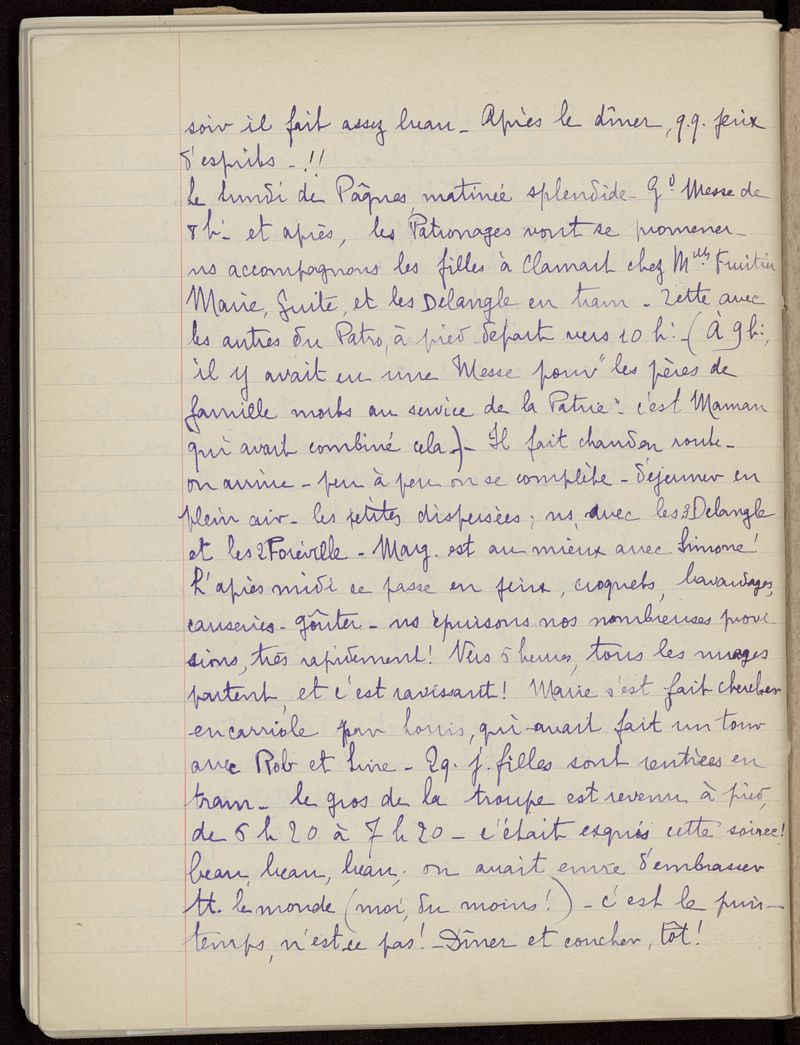 soir il fait assez beau _ Après le dîner, q.q. jeux
d'esprits _ !!
Le lundi de Pâques, matinée splendide _ Gd Messe de
8h _ et après, les Patronages vont se promener _
ns accompagnons les filles à Clamart chez Melles Fruitier
Marie, Guite, et les Delangle en tram _ Zette avec
les autres du Patro, à pied. départ vers 10 h: _ (À 9 h:,
il y avait eu une Messe pour "les pères de
famille morts au service de la Patrie". c'est Maman
qui avait combiné cela _) _ Il fait chaud en route _
on arrive _ peu à peu on se complète _ déjeuner en
plein air _ les petites dispersées; ns, avec les 3 Delangle
et les 2 Foréville _ Marg. est au mieux avec Simone!
L'après midi se passe en jeux, croquets, bavardages,
causeries _ goûter _ ns épuisons nos nombreuses provi-
sions, très rapidement! Vers 5 heures, tous les nuages
partent, et c'est ravissant! Marie s'est fait chercher
en carriole par Louis, qui avait fait un tour
avec Rob et Line _ Qq. j. filles sont rentrées en
tram _ le gros de la troupe est revenu à pied,
de 6 h 20 à 7 h 20 _ c'était exquis cette soirée!
beau, beau, beau; on avait envie d'embrasser
tt. le monde (moi, du moins!) _ c'est le prin-
temps, n'est ce pas! _ Dîner et coucher, tôt!